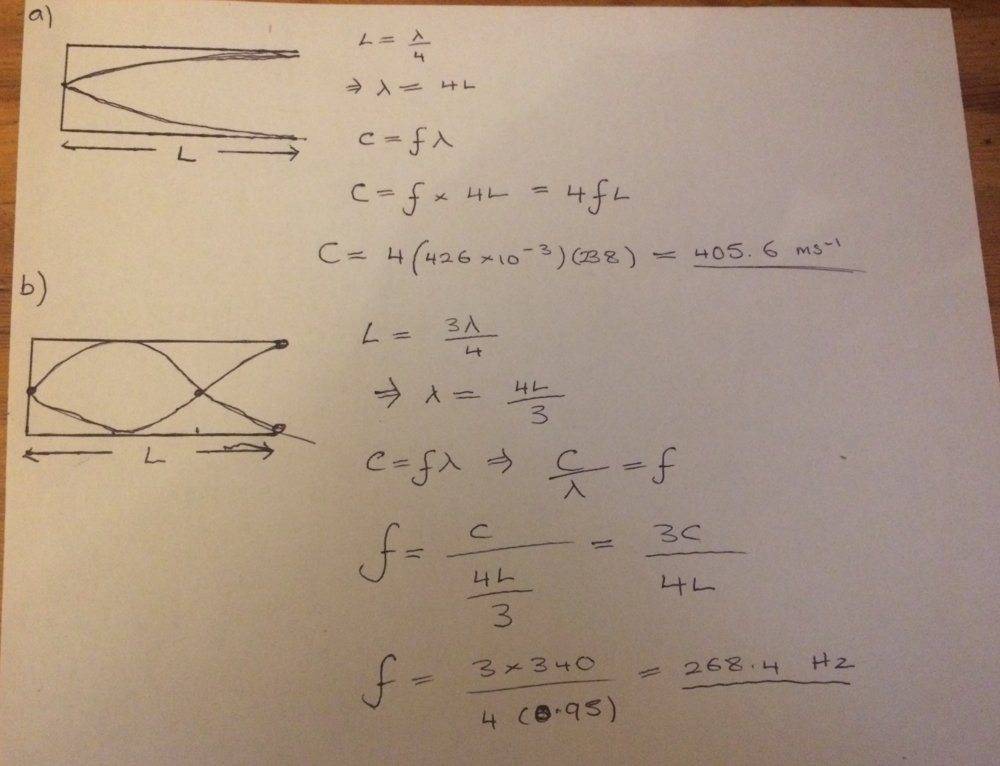 a)
L = λ/4
⇒ λ = 4L
L
C = fλ
C = f × 4L = 4fL
C = 4(426 × 10⁻³)(238) = 405.6 ms⁻¹
b)
L = 3λ/4
⇒ λ = 4L/3
L
C = fλ ⇒ C/λ = f
f = C/(4L/3) = 3C/4L
f = 3×340/4(0.95) = 268.4 Hz